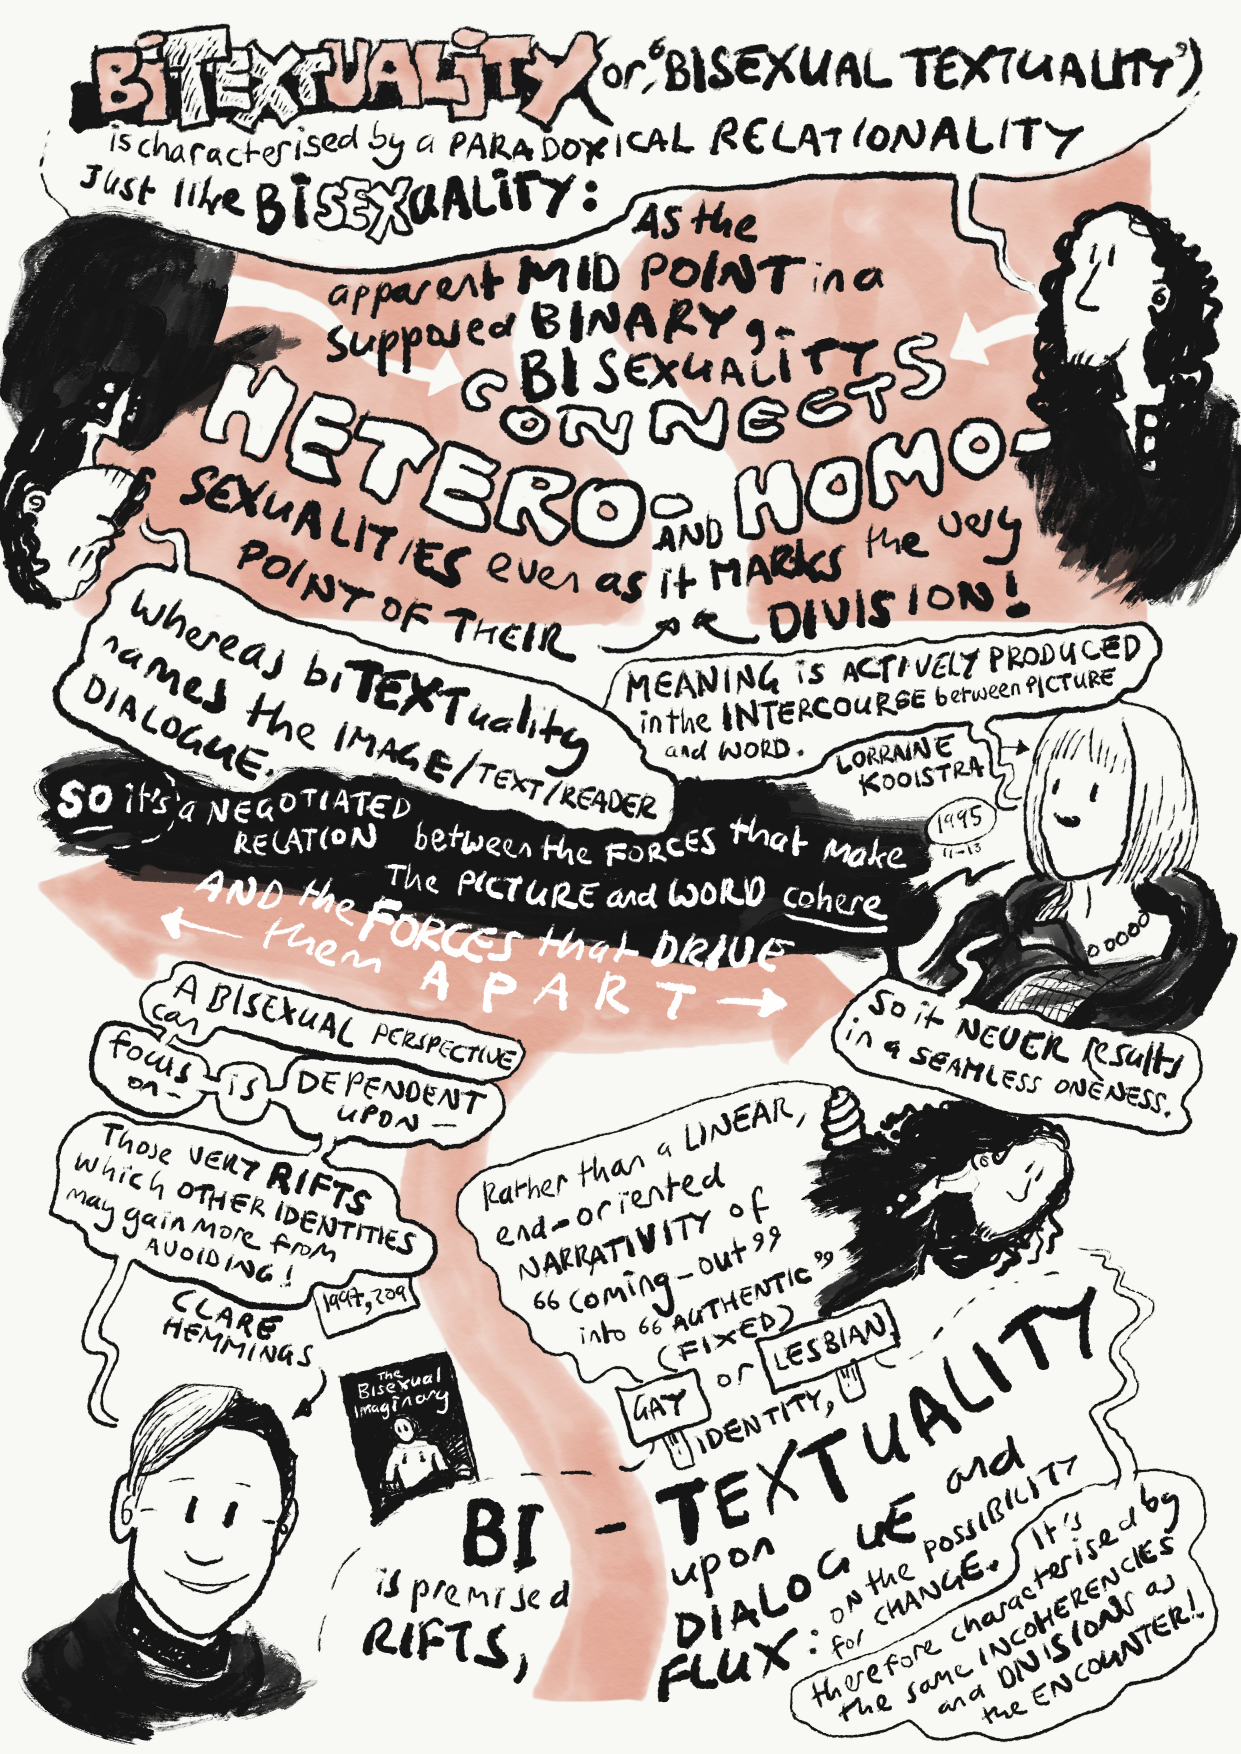 BiTEXTUALiTY (or, "BISEXUAL TEXTUALITY")
is characterised by a PARADOXICAL RELATIONALITY
Just like BISEXUALITY:
As the
apparent MID POINT in a
supposed BINARY,
BISEXUALITY
CONNECTS
HETERO- AND HOMO-
SEXUALITIES even as it MARKS the very
POINT OF THEIR DIVISION!
Whereas biTEXTuality
names the IMAGE/TEXT/READER
DIALOGUE.
MEANING is ACTIVELY PRODUCED
in the INTERCOURSE between PICTURE
and WORD.
LORRAINE
KOOISTRA
1995
11-13
SO it's a NEGOTIATED
RELATION between the FORCES that make
The PICTURE and WORD cohere
AND the FORCES that DRIVE
them APART
So it NEVER results
in a SEAMLESS ONENESS.
A BISEXUAL PERSPECTIVE
can
focus
on-
is
DEPENDENT
UPON-
Those VERY RIFTS
which OTHER IDENTITIES
may gain more from
AVOIDING!
1997, 209
CLARE
HEMMINGS
The
Bisexual
Imaginary
Rather than a LINEAR,
end-oriented
NARRATIVITY of
"coming-out"
into "AUTHENTIC"
(FIXED)
GAY or LESBIAN
IDENTITY,
BI-TEXTUALITY
is premised upon
RIFTS, DIALOGUE and
FLUX: on the POSSIBILITY
for CHANGE. It's
therefore characterised by
the same INCOHERENCIES
and DIVISIONS as
the ENCOUNTER!